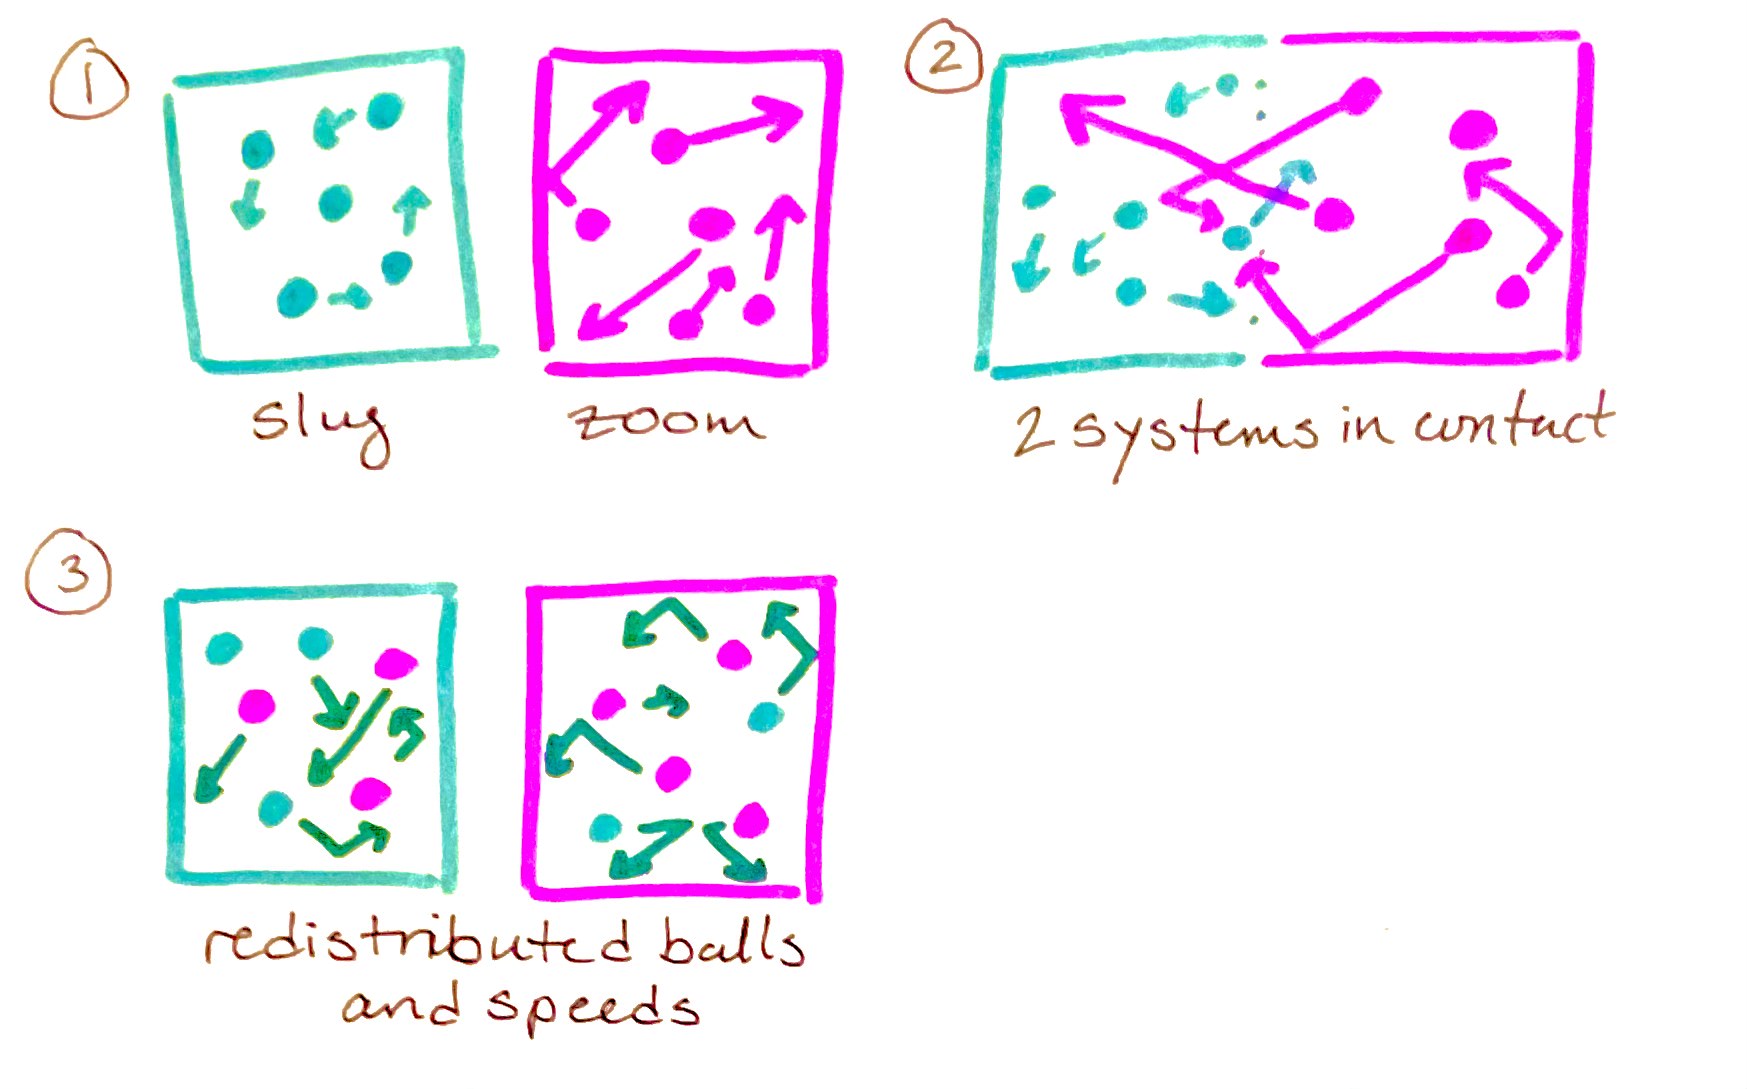 1
slug
zoom
2
2 systems in contact
3
redistributed balls
and speeds